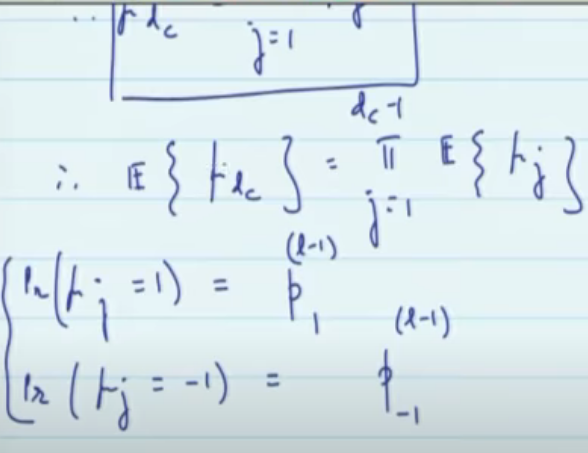 ∴ μ_{d_c} j=1
∴ 𝔼{μ_{d_c}} = ∏_{j=1}^{d_c-1} 𝔼{μ_j}
Pr(μ_j = 1) = p_1^{(l-1)}
Pr(μ_j = -1) = p_{-1}^{(l-1)}